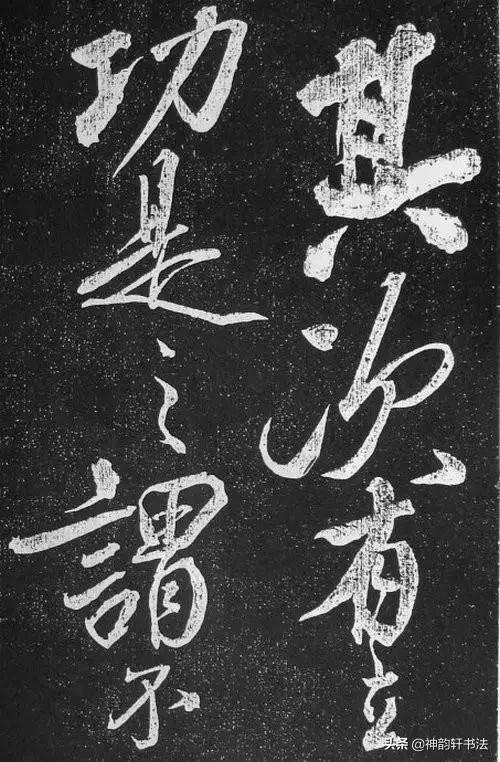 其次有立
功是之謂不
头条 @神韵轩书法